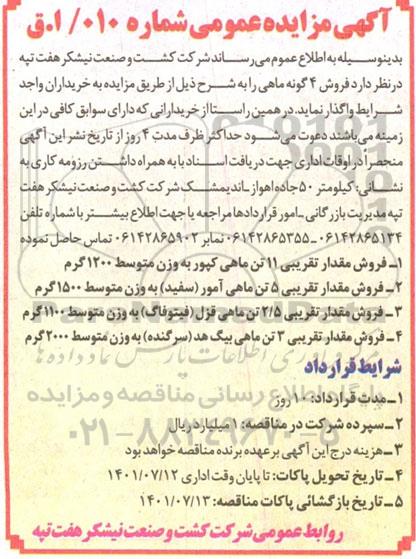 آگهی مزایده عمومی شماره ۰۱۰/ا.ق
بدینوسیله به اطلاع عموم می رساند شرکت کشت و صنعت نیشکر هفت تپه
در نظر دارد فروش ۴ گونه ماهی را به شرح ذیل از طریق مزایده به خریداران واجد
شرایط واگذار نماید. در همین راستا از خریدارانی که دارای سوابق کافی در این
زمینه می باشند دعوت می شود حداکثر ظرف مدت ۴ روز از تاریخ نشر این آگهی
منحصراً در اوقات اداری جهت دریافت اسناد با به همراه داشتن رزومه کاری به
نشانی: کیلومتر ۵۰ جاده اهواز ـ اندیمشک شرکت کشت و صنعت نیشکر هفت
تپه مدیریت بازرگانی ـ امور قراردادها مراجعه یا جهت اطلاع بیشتر با شماره تلفن
۰۶۱۴۲۸۶۵۱۳۴ ـ ۰۶۱۴۲۸۶۵۳۵۵ نمابر ۰۶۱۴۲۸۶۵۹۰۲ تماس حاصل نموده
۱ـ فروش مقدار تقریبی ۱۱ تن ماهی کپور به وزن متوسط ۱۲۰۰ گرم
۲ـ فروش مقدار تقریبی ۵ تن ماهی آمور (سفید) به وزن متوسط ۱۵۰۰ گرم
۳ـ فروش مقدار تقریبی ۲/۵ تن ماهی قزل (فیتوفاگ) به وزن متوسط ۱۱۰۰ گرم
۴ـ فروش مقدار تقریبی ۳ تن ماهی بیگ هد (سرگنده) به وزن متوسط ۲۰۰۰ گرم
شرایط قرارداد
۱ـ مدت قرارداد: ۱۰ روز
۲ـ سپرده شرکت در مناقصه: ۱ میلیارد ریال
۳ـ هزینه درج این آگهی بر عهده برنده مناقصه خواهد بود
۴ـ تاریخ تحویل پاکات: تا پایان وقت اداری ۱۴۰۱/۰۷/۱۲
۵ـ تاریخ بازگشائی پاکات مناقصه: ۱۴۰۱/۰۷/۱۳
روابط عمومی شرکت کشت و صنعت نیشکر هفت تپه
پایگاه اطلاع رسانی مناقصه و مزایده
۰۲۱-۸۸۳۴۹۶۷۰-۵